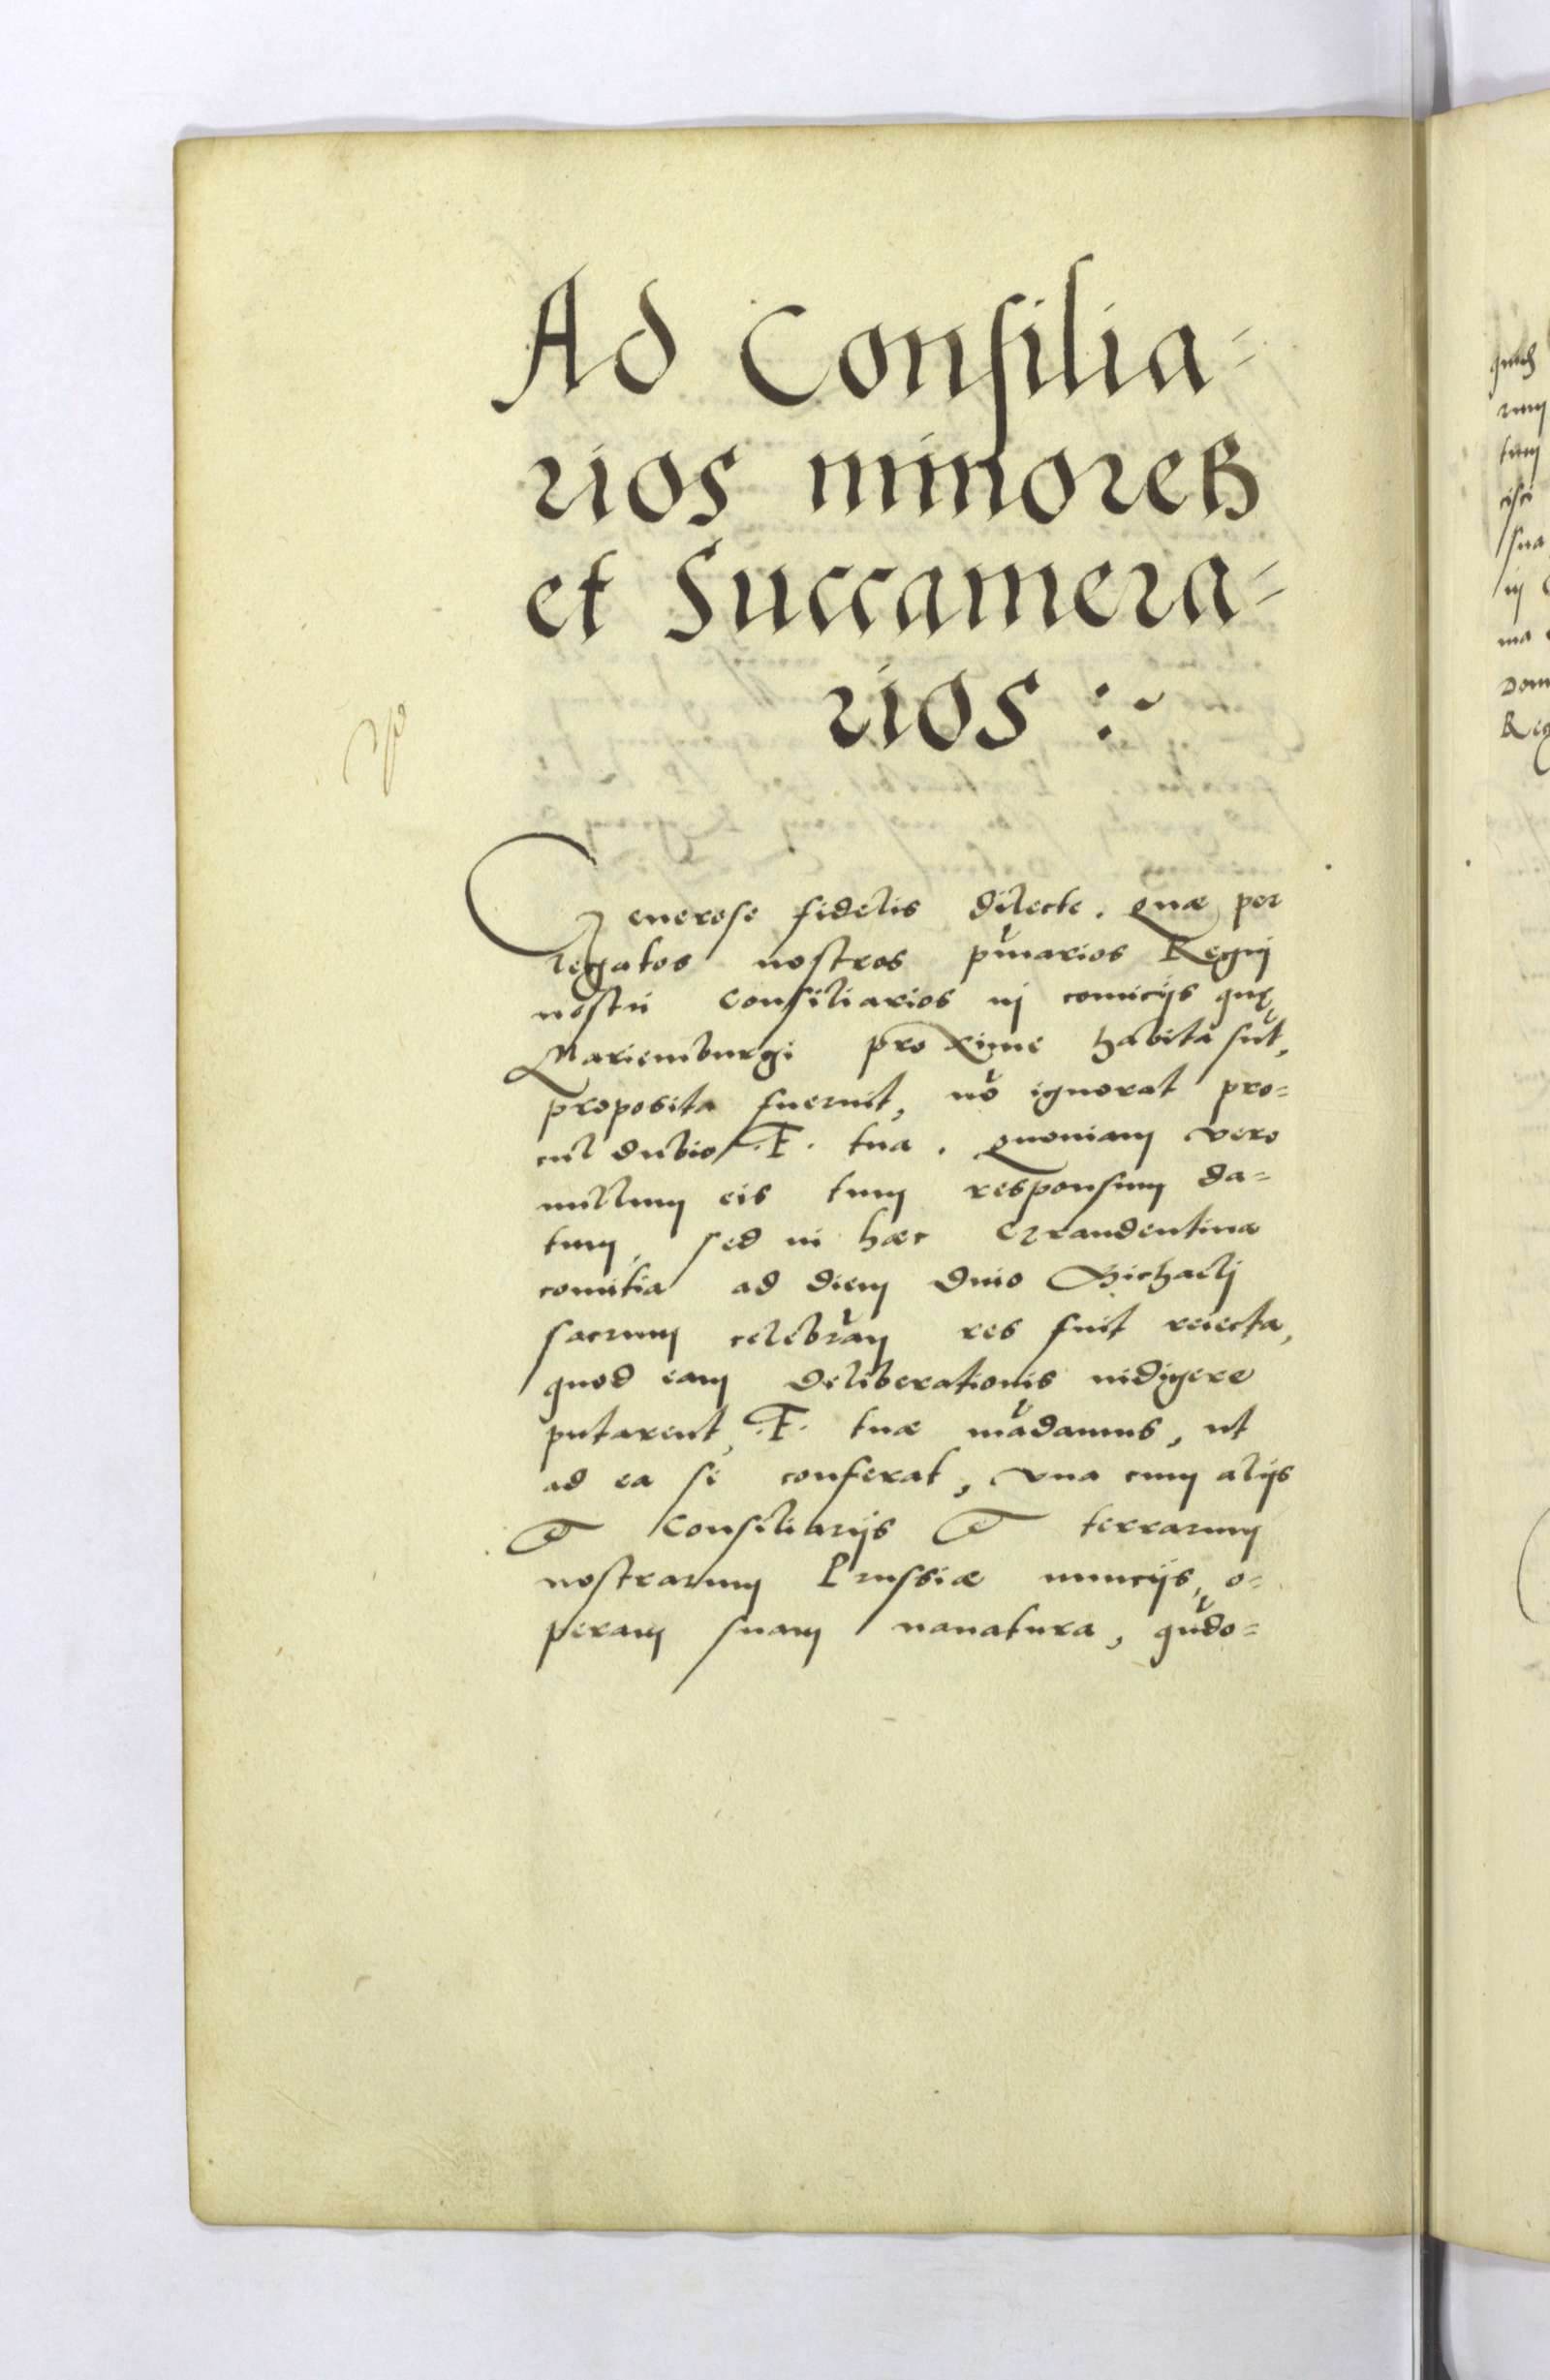 Ad Consilia=
rios minores
et Succamera=
rios :~
Generose fidelis dilecte. Quæ per
legatos nostros pũarios Regnj
nostri Consiliarios in comicijs quę
Mariemburgi proxime habita sũt,
proposita fuerũt, nõ ignorat pro=
cul dubio .F. tua. Quoniam vero
nullum eis tum responsum da=
tum, sed in hæc Graudentina
comitia ad diem Diuo Michaelj
sacrum celebrãn res fuit reiecta,
quod eam deliberationis indigere
putarent, .F. tuæ mãdamus, ut
ad ea se conferat, vna cum alijs
et Consiliarijs et terrarum
nostrarum Prussiæ nuncijs, o=
peram suam nauatura, qũdo=
quã
rum
tum
cisci
sua
in
ma
Dom
Reg